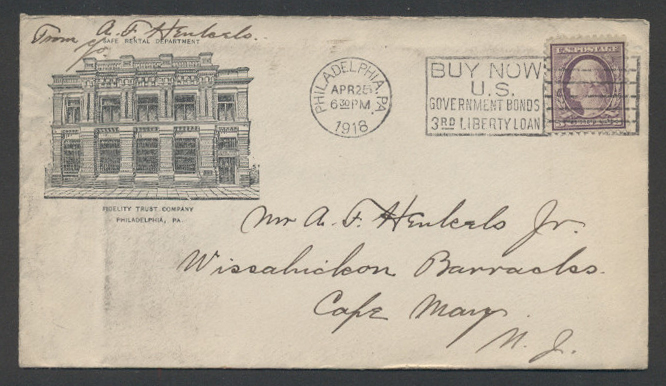 From A. F. Henkels.
SAFE RENTAL DEPARTMENT
PHILADELPHIA, PA.
APR 25
6 30 PM
1918
BUY NOW
U.S.
GOVERNMENT BONDS
3RD LIBERTY LOAN
U.S. POSTAGE
FIDELITY TRUST COMPANY
PHILADELPHIA, PA.
Mr A. F. Henkels Jr.
Wissahickon Barracks.
Cape May
N. J.